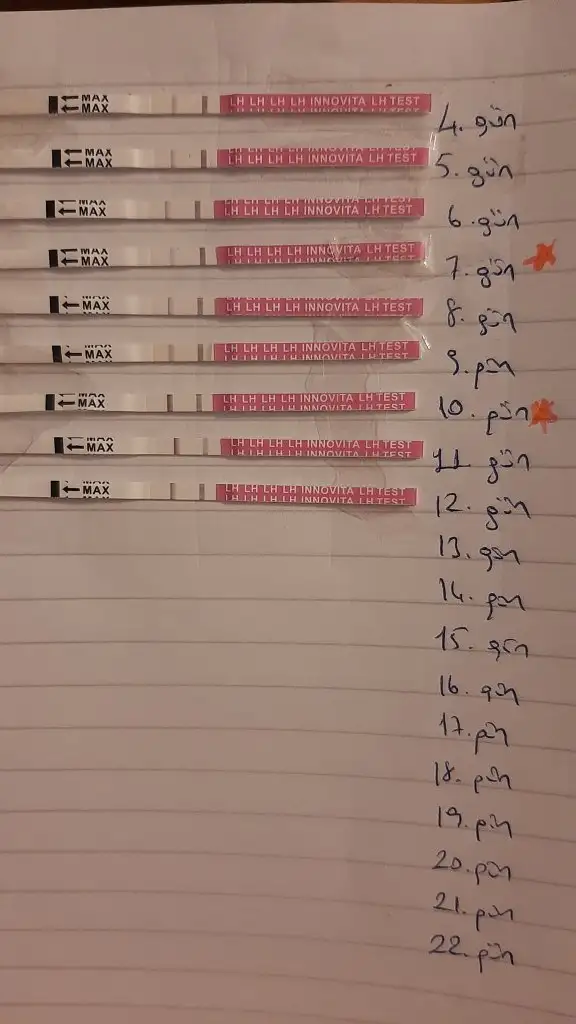 MAX MAX LH LH LH LH INNOVITA LH TEST 4. gün
MAX MAX LH LH LH LH INNOVITA LH TEST 5. gün
MAX MAX LH LH LH LH INNOVITA LH TEST 6. gün
MAX MAX LH LH LH LH INNOVITA LH TEST 7. gün
MAX MAX LH LH LH LH INNOVITA LH TEST 8. gün
MAX MAX LH LH LH LH INNOVITA LH TEST 9. gün
MAX MAX LH LH LH LH INNOVITA LH TEST 10. gün
MAX MAX LH LH LH LH INNOVITA LH TEST 11 gün
MAX MAX LH LH LH LH INNOVITA LH TEST 12. gün
13. gün
14. gün
15. gün
16. gün
17. gün
18. gün
19. gün
20. gün
21. gün
22. gün